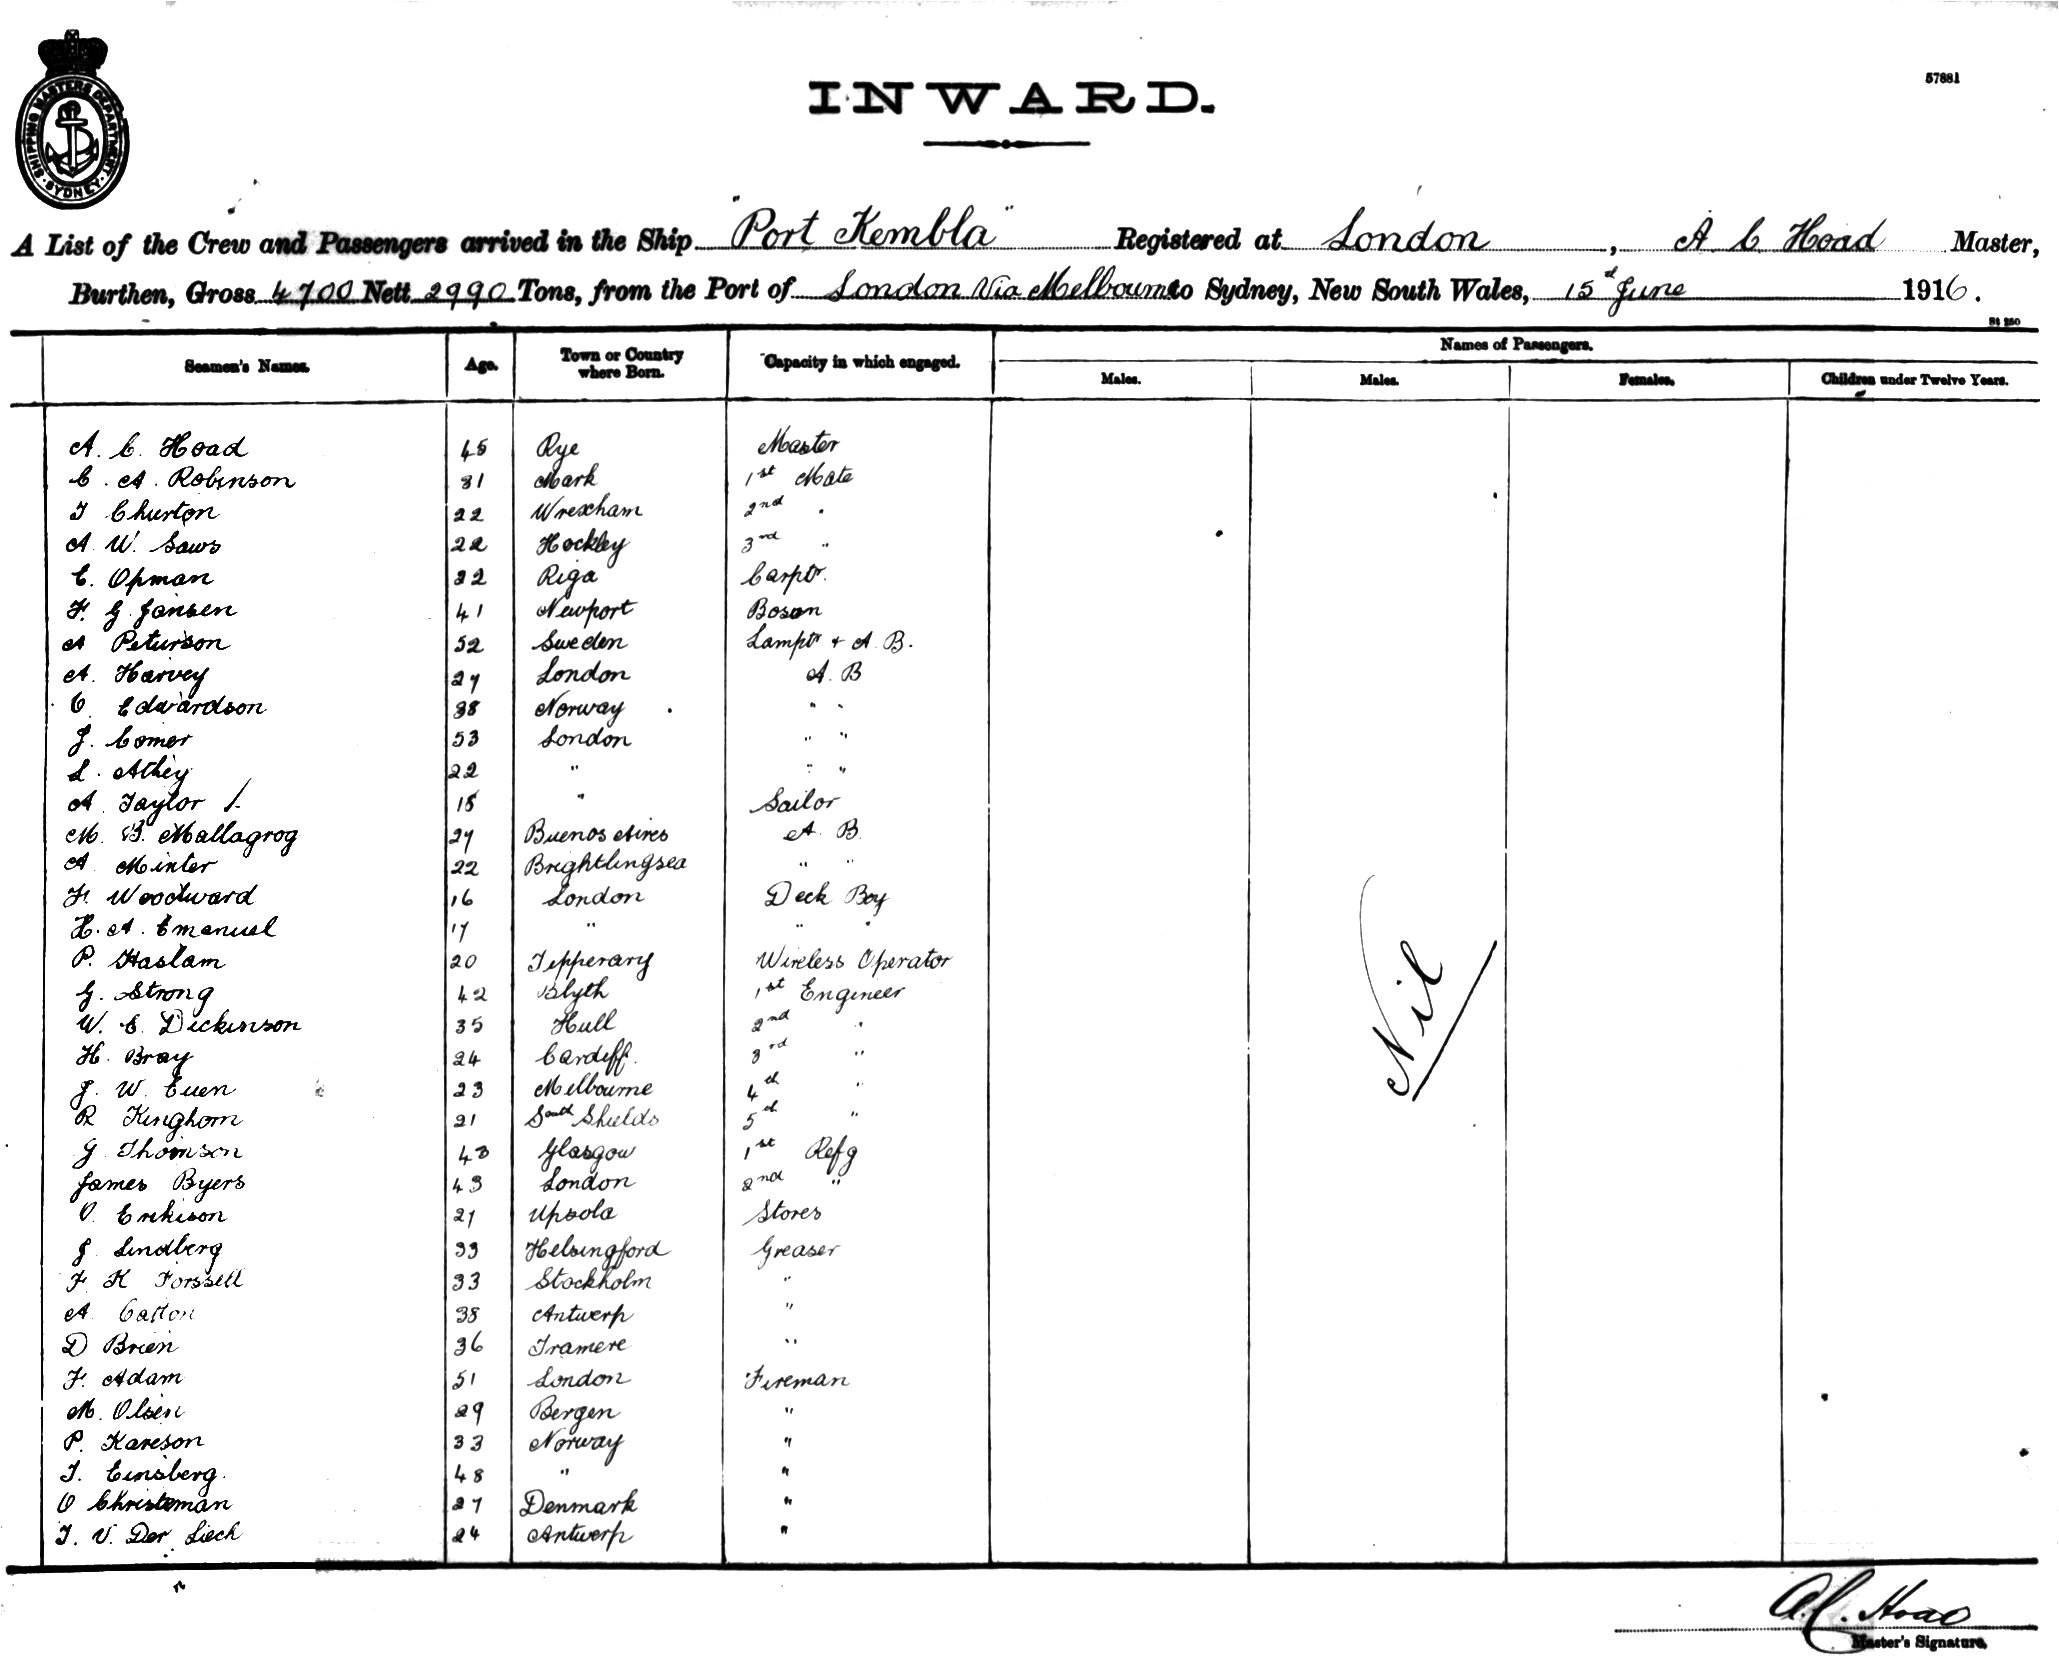 SHIPPING MASTERS DEPARTMENT · SYDNEY ·
57881
INWARD.
A List of the Crew and Passengers arrived in the Ship "Port Kembla" Registered at London, A C Hoad Master,
Burthen, Gross 4700 Nett 2990 Tons, from the Port of London Via Melbourne to Sydney, New South Wales, 15th June 1916.
Seamen's Names. Age. Town or Country where Born. Capacity in which engaged. Names of Passengers.
Males. Males. Females. Children under Twelve Years.
A. C. Hoad 45 Rye Master
C. A. Robinson 31 Mark 1st Mate
T Churton 22 Wrexham 2nd "
A. W. Saws 22 Hockley 3rd "
C. Opman 22 Riga Carptr.
F. G. Jansen 41 Newport Bosun
A Peturson 52 Sweden Lamptr + A. B.
A. Harvey 27 London A. B
C. Edwardson 38 Norway " "
J. Comer 53 London " "
L. Athey 22 " " "
A. Taylor 15 " Sailor
M. B. Mallagrog 27 Buenos Aires A. B.
A Minter 22 Brightlingsea " "
F. Woodward 16 London Deck Boy
H. A. Emanuel 17 " " "
P. Haslam 20 Tipperary Wireless Operator
G. Strong 42 Blyth 1st Engineer
W. E. Dickinson 35 Hull 2nd "
H. Bray 24 Cardiff. 3rd "
J. W. Euen 23 Melbourne 4th "
R Kinghorn 21 South Shields 5th "
G. Thomson 43 Glasgow 1st Refg
James Byers 43 London 2nd "
O. Erikison 21 Upsola Stores
J Lindberg 33 Helsingford Greaser
F. K Forssell 33 Stockholm "
A Catton 38 Antwerp "
D Brien 36 Tramere "
F. Adam 51 London Fireman
M. Olsen 29 Bergen "
P. Kareson 33 Norway "
T. Einsberg. 48 " "
O Christeman 27 Denmark "
T. V. Der Liech 24 Antwerp "
Nil
A. C. Hoad
Master's Signature.